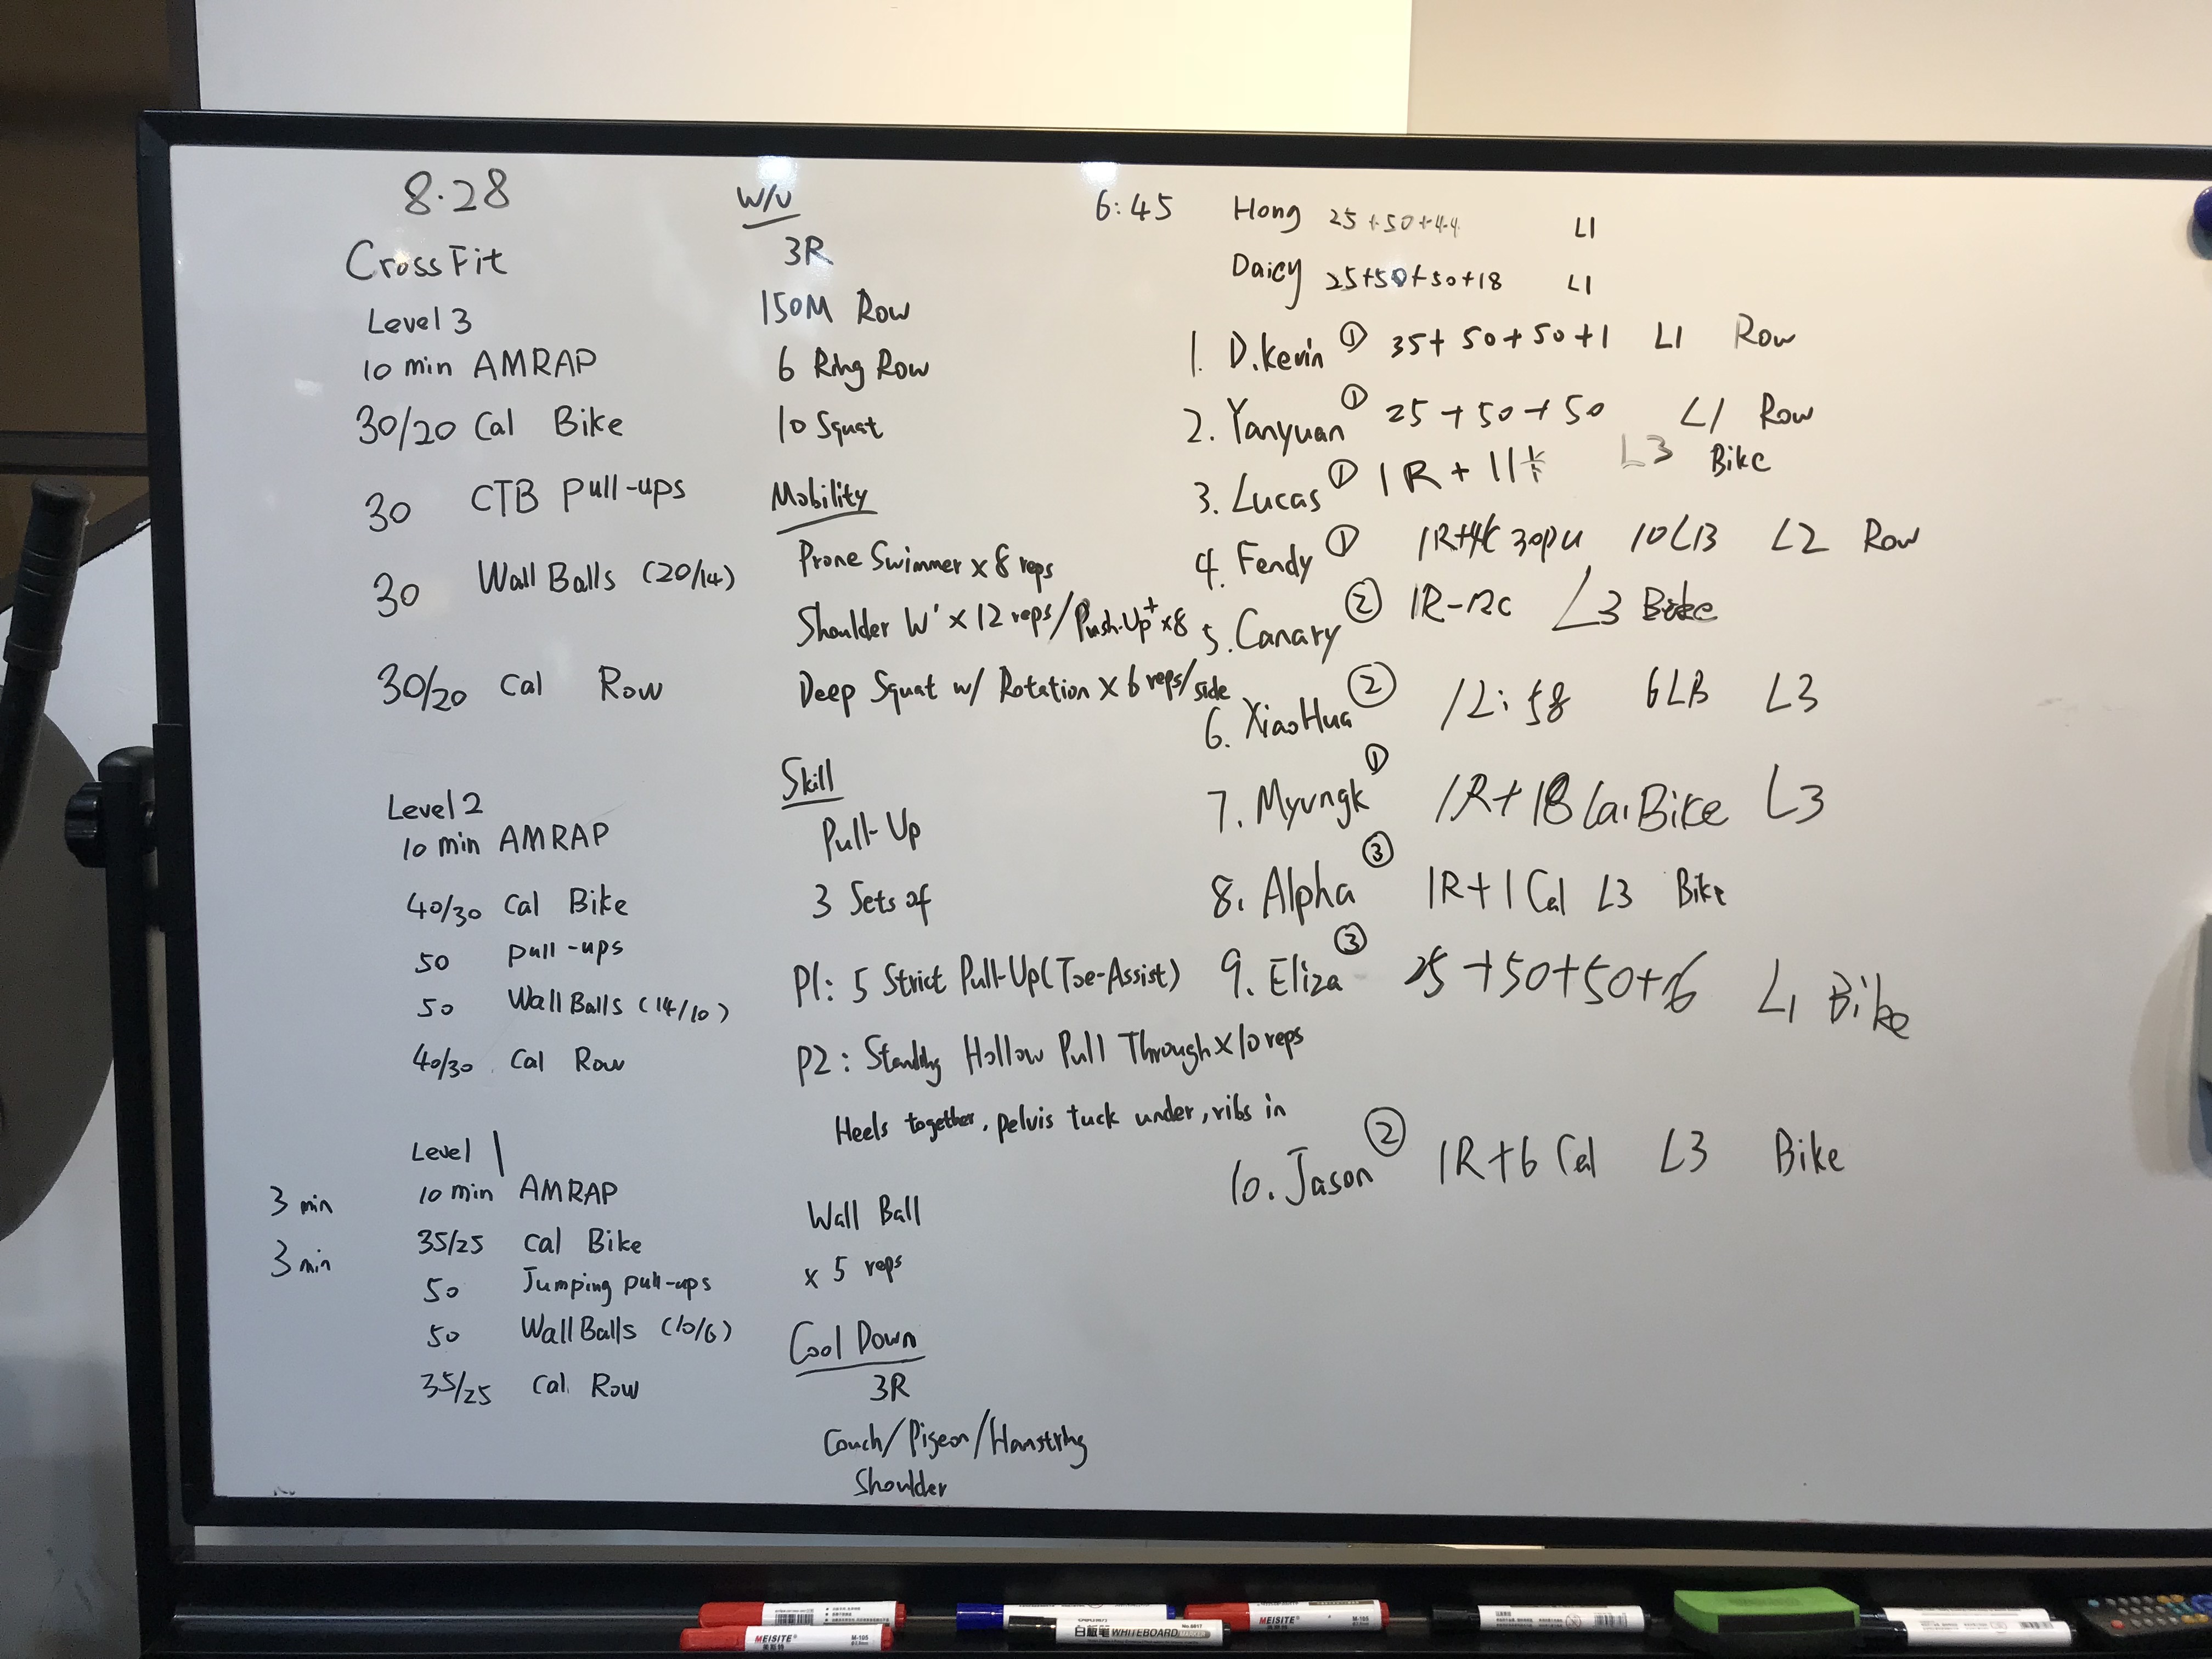 8.28
CrossFit
Level 3
10 min AMRAP
30/20 Cal Bike
30 CTB Pull-ups
30 Wall Balls (20/14)
30/20 Cal Row
Level 2
10 min AMRAP
40/30 Cal Bike
50 Pull-ups
50 Wall Balls (14/10)
40/30 Cal Row
Level 1
3 min 10 min AMRAP
3 min 35/25 Cal Bike
50 Jumping pull-ups
50 Wall Balls (10/6)
35/25 Cal Row
W/U
3R
150M Row
6 Ring Row
10 Squat
Mobility
Prone Swimmer x 8 reps
Shoulder W' x 12 reps/Push-Up+ x8
Deep Squat w/ Rotation x 6 reps/side
Skill
Pull-Up
3 Sets of
P1: 5 Strict Pull-Up (Toe-Assist)
P2: Standing Hollow Pull Through x 10 reps
Heels together, pelvis tuck under, ribs in
Wall Ball
x 5 reps
Cool Down
3R
Couch/Pigeon/Hamstring
Shoulder
6:45 Hong 25+50+44 L1
Daicy 25+50+50+18 L1
1. D.kevin ① 35+50+50+1 L1 Row
2. Yanyuan ① 25+50+50 L1 Row
3. Lucas ① 1R+11 L3 Bike
4. Fendy ① 30PU 10LB L2 Row
5. Canary ② 1R-12C L3 Bike
6. XiaoHua ② 6LB L3
7. Myungk ① 1R+18 Cal Bike L3
8. Alpha ③ 1R+1 Cal L3 Bike
9. Eliza ③ 25+50+50+6 L1 Bike
10. Jason ② 1R+6 Cal L3 Bike
MEISITE
M-105
MEISITE
M-105
WHITEBOARD